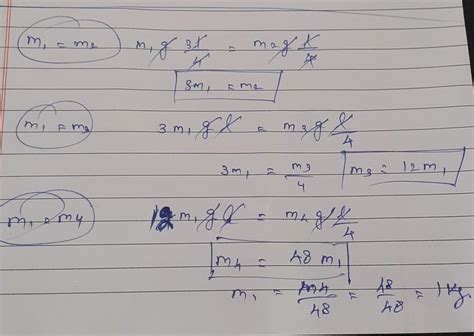 m₁ = m₂ m₁g 3l/4 = m₂g l/4
3m₁ = m₂
m₁ = m₃ 3m₁gl = m₃g l/4
3m₁ = m₃/4 m₃ = 12m₁
m₁ = m₄ 12m₁gl = m₄g l/4
m₄ = 48 m₁
m₁ = m₄/48 = 48/48 = 1kg.